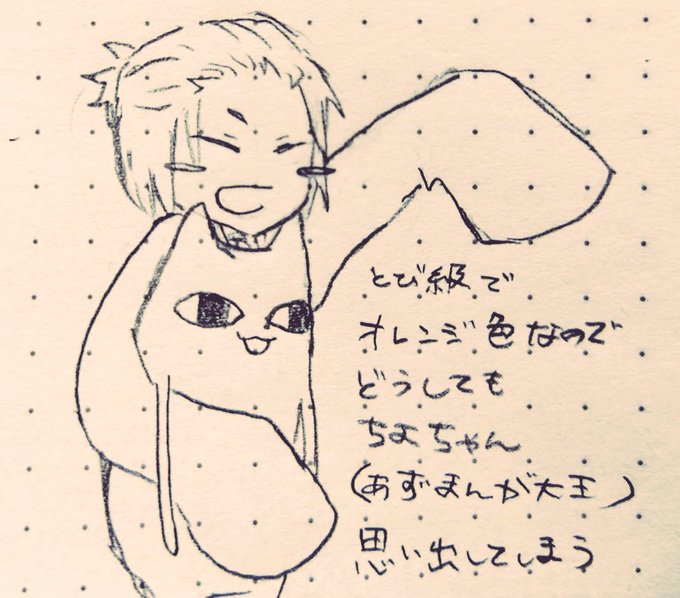 とび級で
オレンジ色なので
どうしても
ちよちゃん
(あずまんが大王)
思い出してしまう